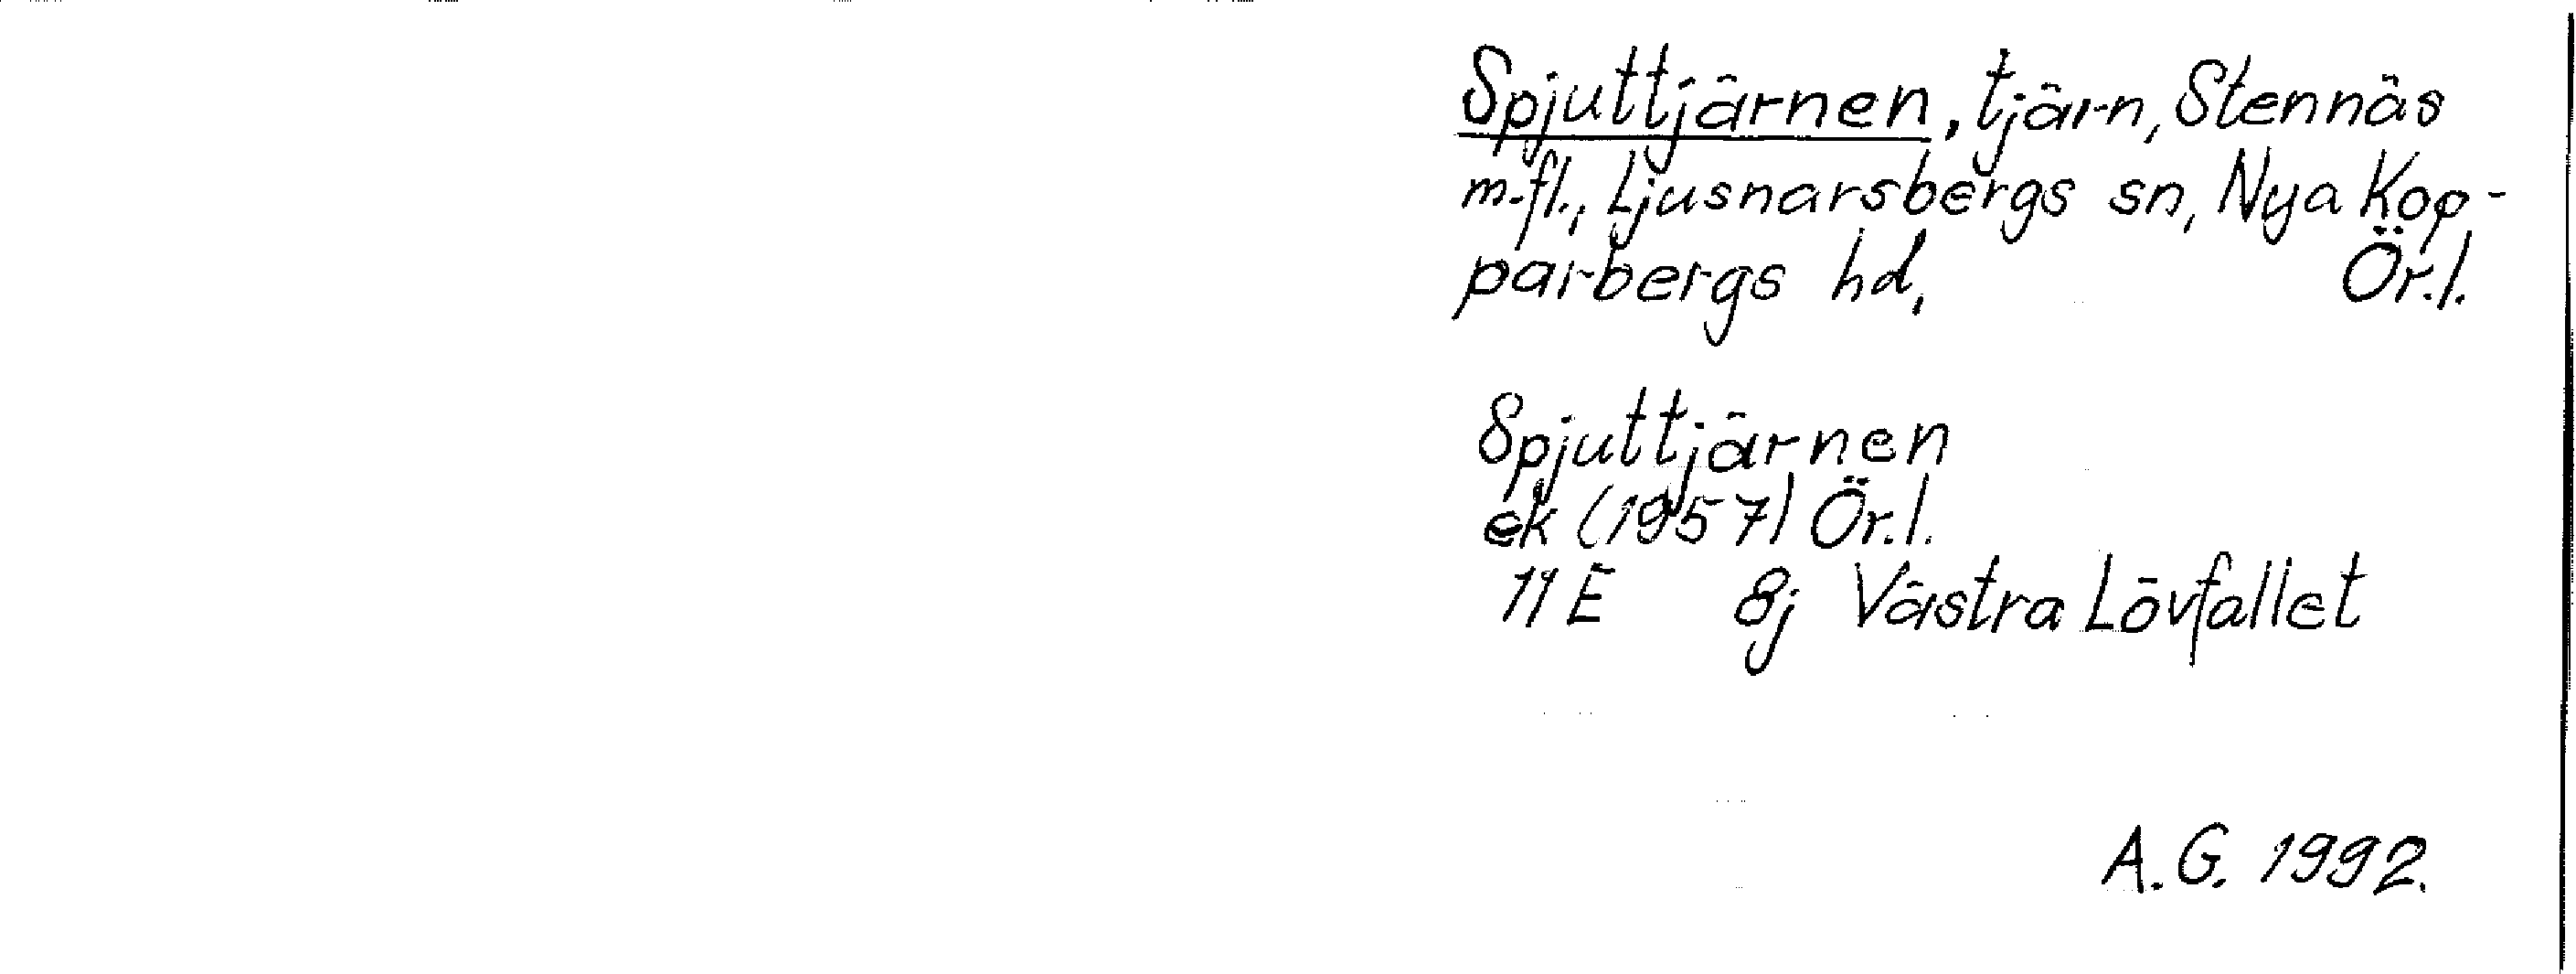 Spjuttjärnen, tjärn, Stennäs
m.fl., Ljusnarsbergs sn, Nya Kop-
parbergs hd, Ör.l.
Spjuttjärnen
ek (1957) Ör.l.
11 E 8j Västra Lövfallet
A.G. 1992.